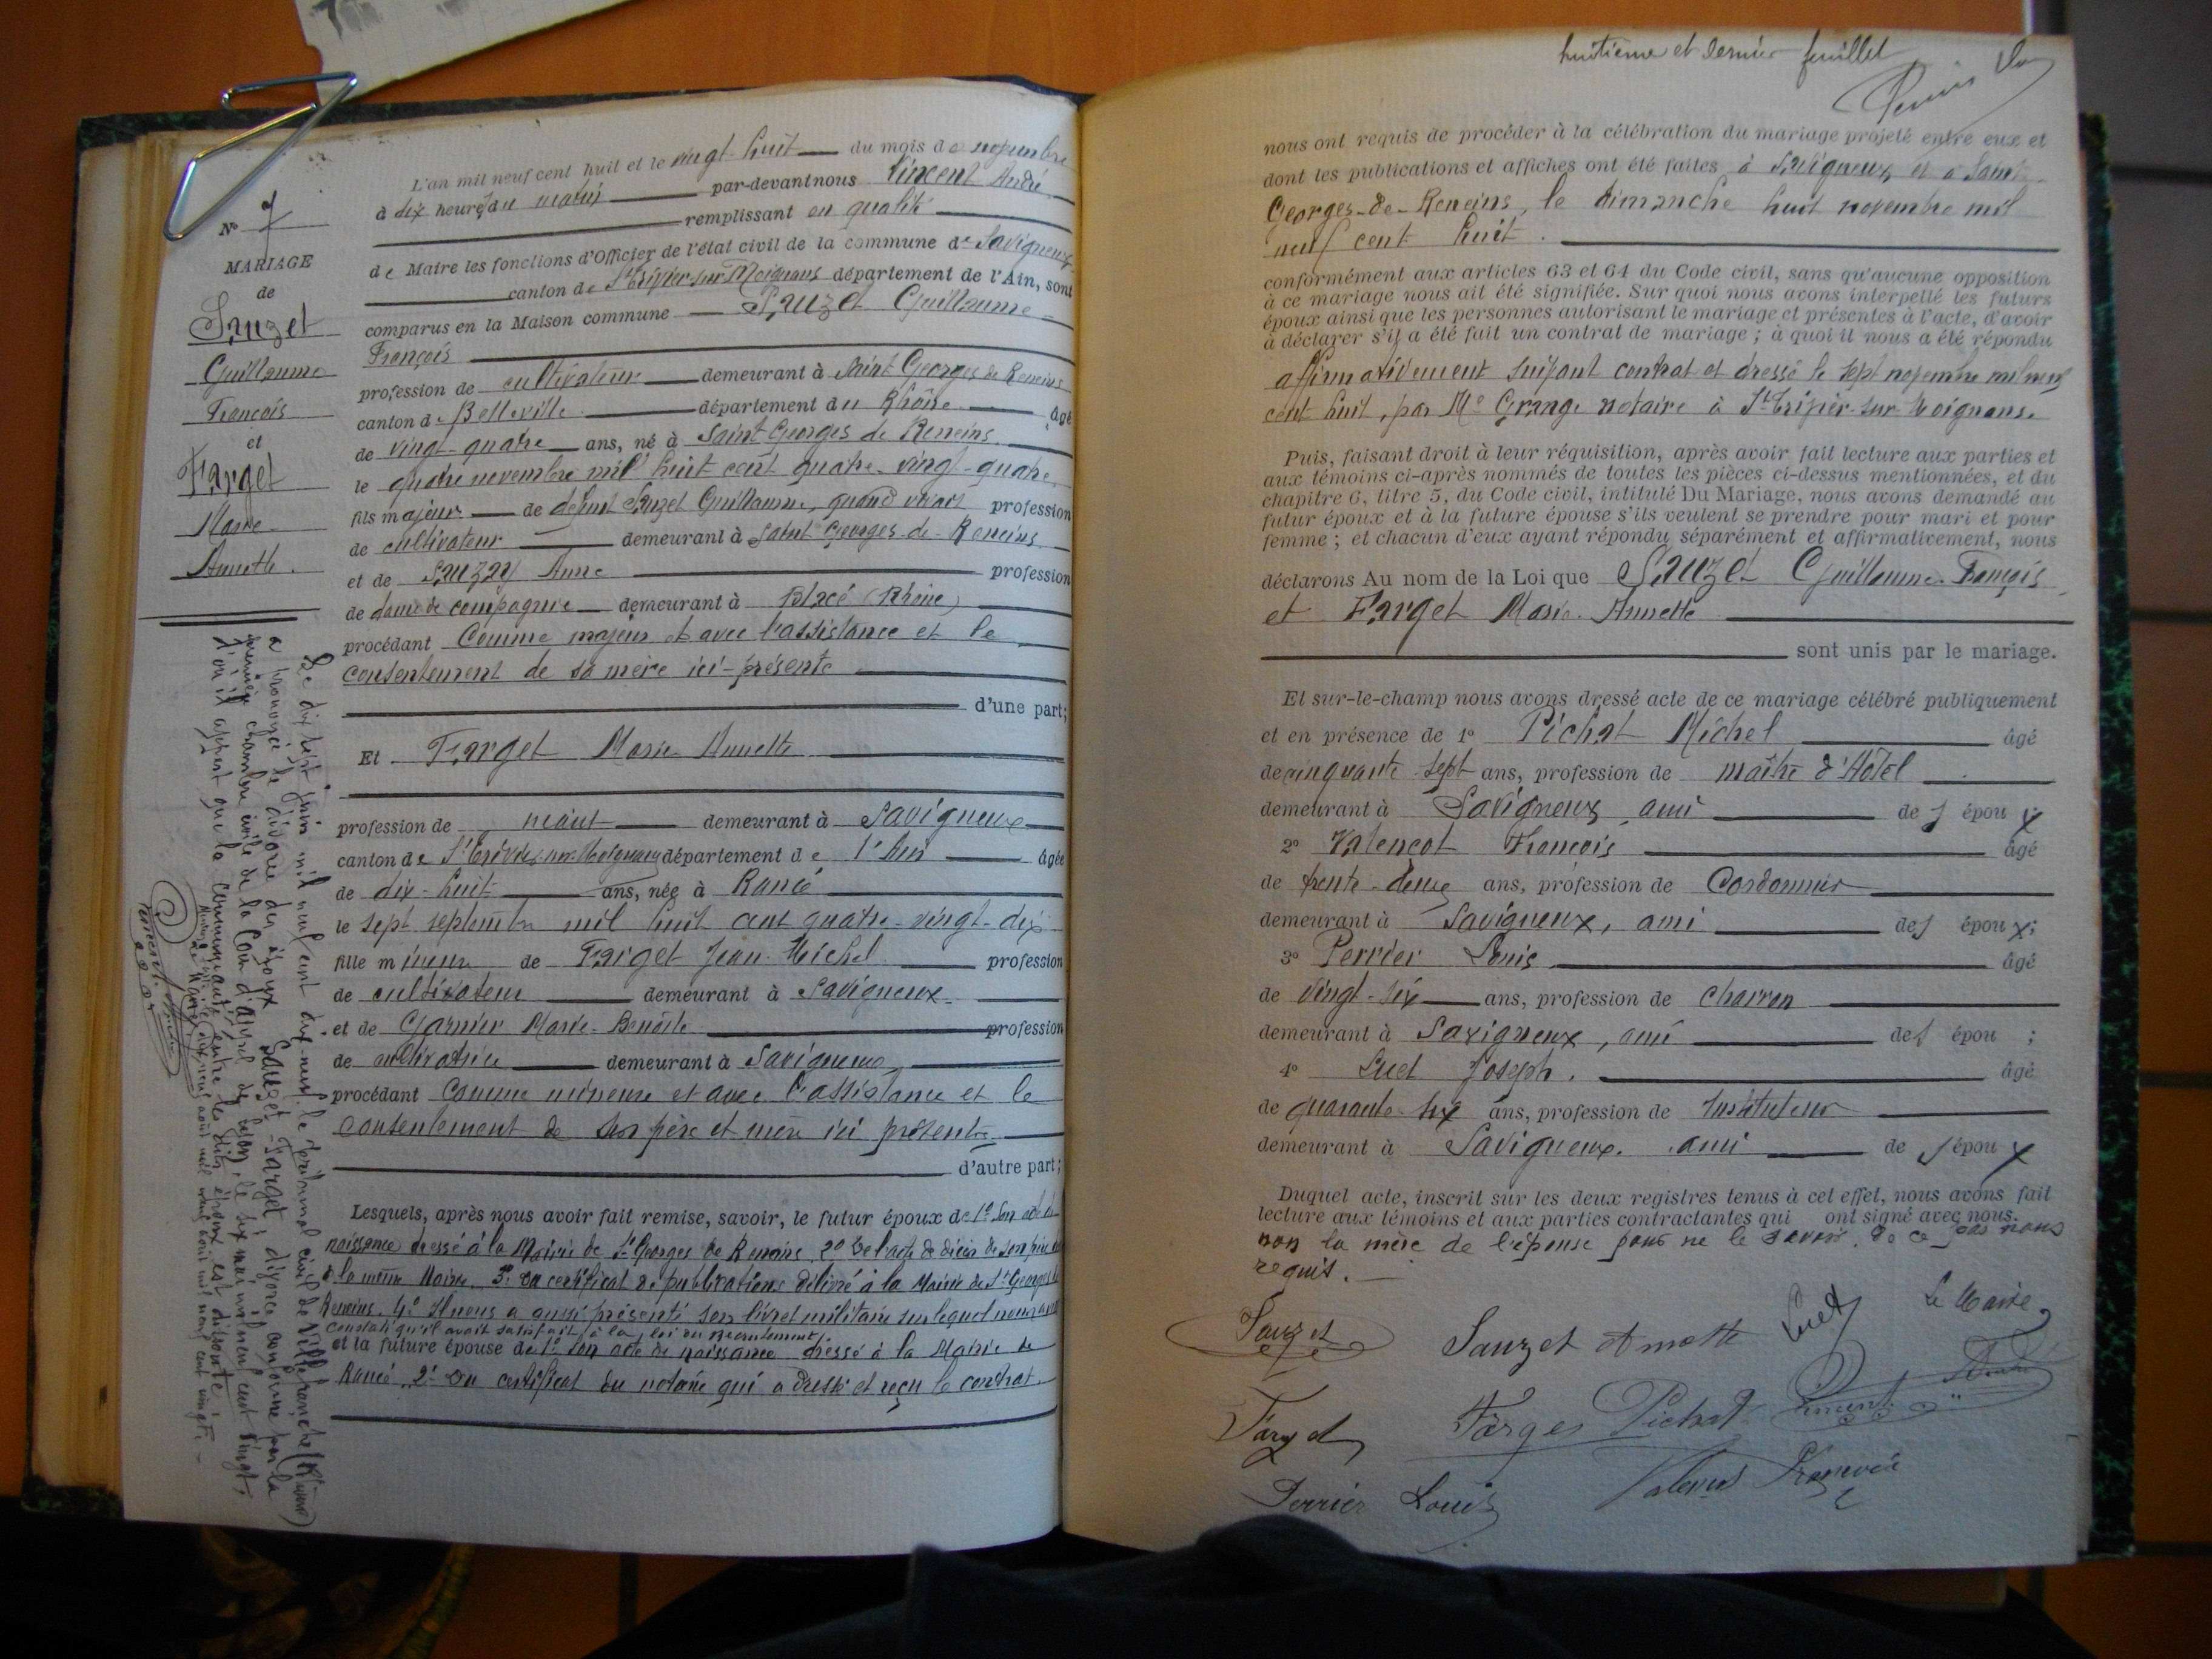 L'an mil neuf cent huit et le vingt-huit du mois de novembre
à dix heures du matin par-devant nous Vincent André
remplissant en qualité
de Maire les fonctions d'Officier de l'état civil de la commune de Savigneux
canton de St Trivier-sur-Moignans département de l'Ain, sont
comparus en la Maison commune Sauzet Guillaume
François
profession de cultivateur demeurant à Saint Georges de Reneins
canton de Belleville département du Rhône âgé
de vingt-quatre ans, né à Saint Georges de Reneins
le quatre novembre mil huit cent quatre-vingt-quatre
fils majeur de défunt Sauzet Guillaume, quand vivait profession
de cultivateur demeurant à Saint Georges-de-Reneins
et de Anne profession
de dame de compagnie demeurant à Blacé (Rhône)
procédant Comme majeur et avec l'assistance et le
consentement de sa mère ici-présente
d'une part;
Et Farget Marie Annette
profession de néant demeurant à Savigneux
canton de St Trivier-sur-Moignans département de l'Ain âgée
de dix-huit ans, née à Rancé
le sept septembre mil huit cent quatre-vingt-dix
fille mineure de Farget Jean-Michel profession
de cultivateur demeurant à Savigneux
et de Garnier Marie-Benoîte profession
de cultivatrice demeurant à Savigneux
procédant Comme mineure et avec l'assistance et le
consentement de son père et mère ici présents
d'autre part;
Lesquels, après nous avoir fait remise, savoir, le futur époux de 1° Son acte de
naissance dressé à la Mairie de St Georges de Reneins 2° De l'acte de décès de son père
à la même Mairie. 3° Du certificat de publications délivré à la Mairie de St Georges de
Reneins. 4° Il nous a aussi présenté son livret militaire sur lequel nous avons
constaté qu'il avait satisfait à la loi du recrutement.
et la future épouse de 1° Son acte de naissance dressé à la Mairie de
Rancé 2° Du certificat du notaire qui a dressé et reçu le contrat.
N° 7
MARIAGE
de
Sauzet
Guillaume
François
et
Farget
Marie
Annette.
Le dix sept juin mil neuf cent dix-neuf, le tribunal civil de Villefranche (Rhône)
a prononcé le divorce des époux Sauzet-Farget, divorce confirmé par la
première chambre civile de la Cour d'appel de Lyon, le six mai mil neuf cent vingt,
d'où il appert que la communauté entre les dits époux est dissoute.
huitième et dernier feuillet
nous ont requis de procéder à la célébration du mariage projeté entre eux et
dont les publications et affiches ont été faites à Savigneux et à Saint-
Georges-de-Reneins, le dimanche huit novembre mil
neuf cent huit.
conformément aux articles 63 et 64 du Code civil, sans qu'aucune opposition
à ce mariage nous ait été signifiée. Sur quoi nous avons interpellé les futurs
époux ainsi que les personnes autorisant le mariage et présentes à l'acte, d'avoir
à déclarer s'il a été fait un contrat de mariage ; à quoi il nous a été répondu
affirmativement suivant contrat et dressé le sept novembre mil neuf
cent huit, par Me Grange notaire à St Trivier-sur-Moignans.
Puis, faisant droit à leur réquisition, après avoir fait lecture aux parties et
aux témoins ci-après nommés de toutes les pièces ci-dessus mentionnées, et du
chapitre 6, titre 5, du Code civil, intitulé Du Mariage, nous avons demandé au
futur époux et à la future épouse s'ils veulent se prendre pour mari et pour
femme ; et chacun d'eux ayant répondu séparément et affirmativement, nous
déclarons Au nom de la Loi que Sauzet Guillaume-François
et Farget Marie-Annette
sont unis par le mariage.
Et sur-le-champ nous avons dressé acte de ce mariage célébré publiquement
et en présence de 1° Pichat Michel âgé
de cinquante-sept ans, profession de maître d'Hôtel
demeurant à Savigneux, ami des époux
2° Valencot François âgé
de trente-deux ans, profession de Cordonnier
demeurant à Savigneux, ami des époux;
3° Perrier Louis âgé
de vingt-six ans, profession de charron
demeurant à Savigneux, ami des épou ;
4° Luet Joseph. âgé
de quarante-six ans, profession de Instituteur
demeurant à Savigneux. ami des époux
Duquel acte, inscrit sur les deux registres tenus à cet effet, nous avons fait
lecture aux témoins et aux parties contractantes qui ont signé avec nous.
non la mère de l'épouse pour ne le savoir. De ce pas nous
requis.
Sauzet
Sauzet
Luet
Le Maire
Farget
Farget
Pichat
Vincent André
Perrier Louis